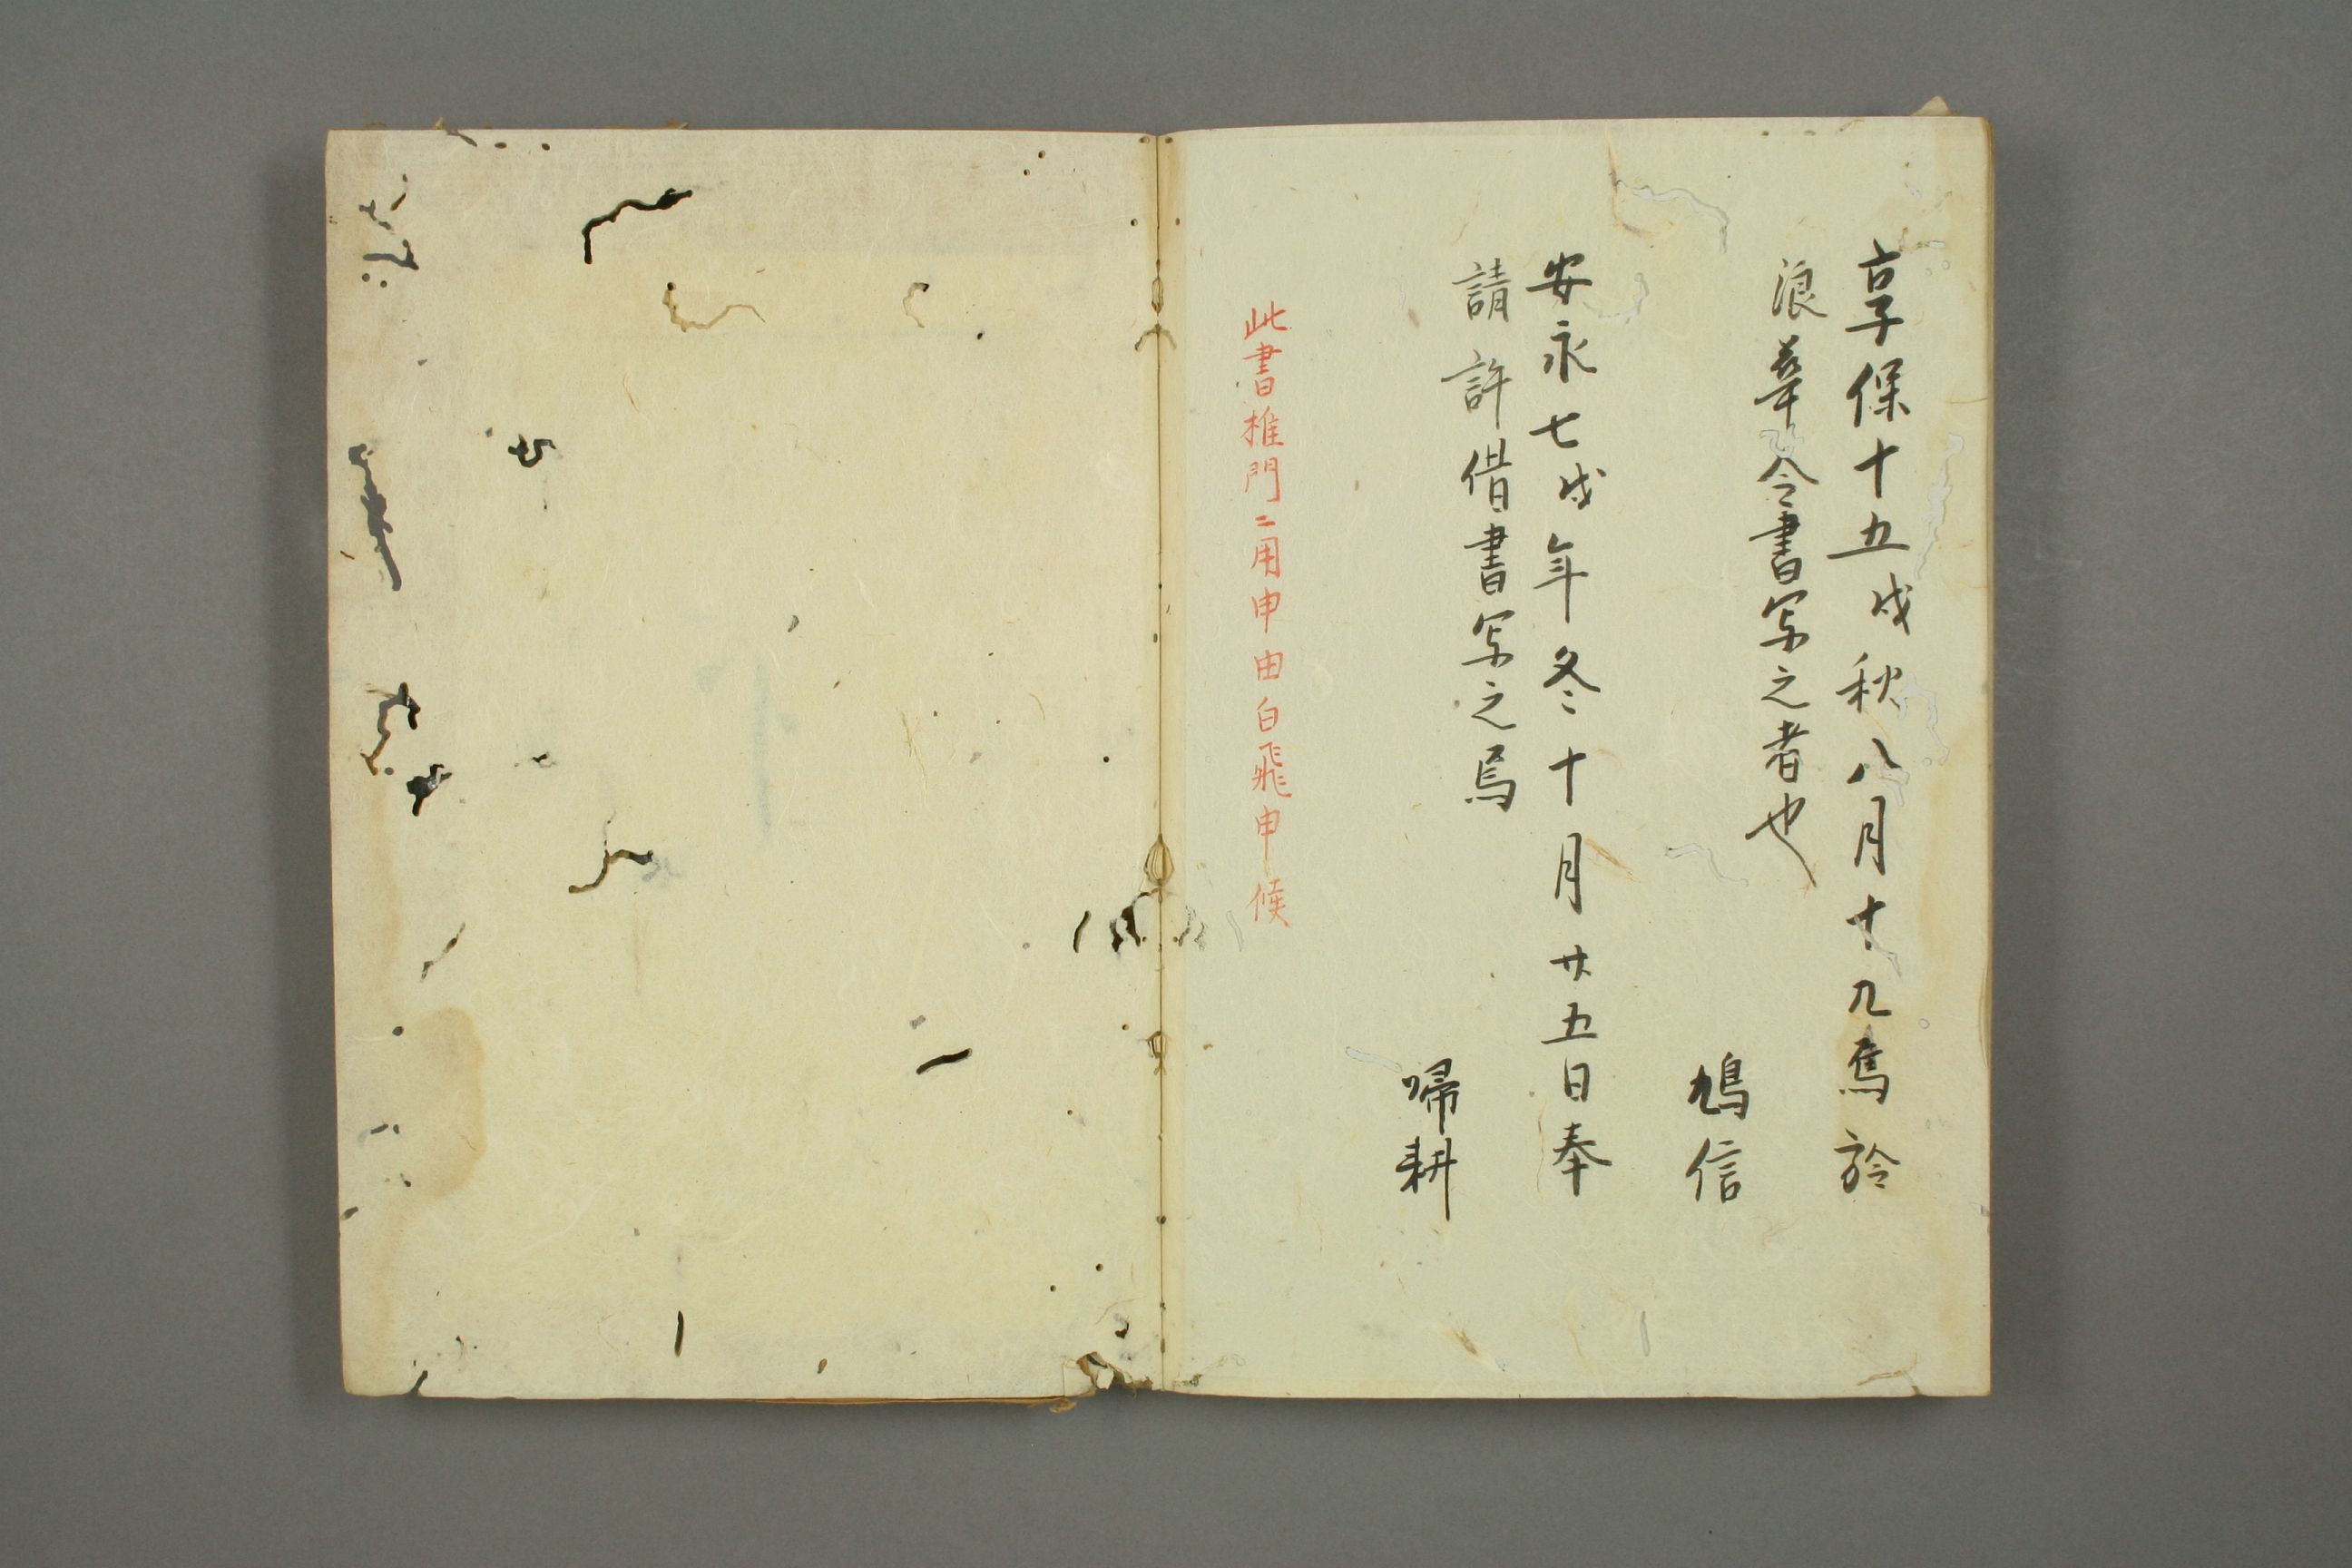 享保十五戌秋八月十九烏於
浪華令書写之者也
鳩信
安永七戌年冬十月廿五日奉
請許借書写之焉
啼耕
此書椎門ニ用申由白飛申候